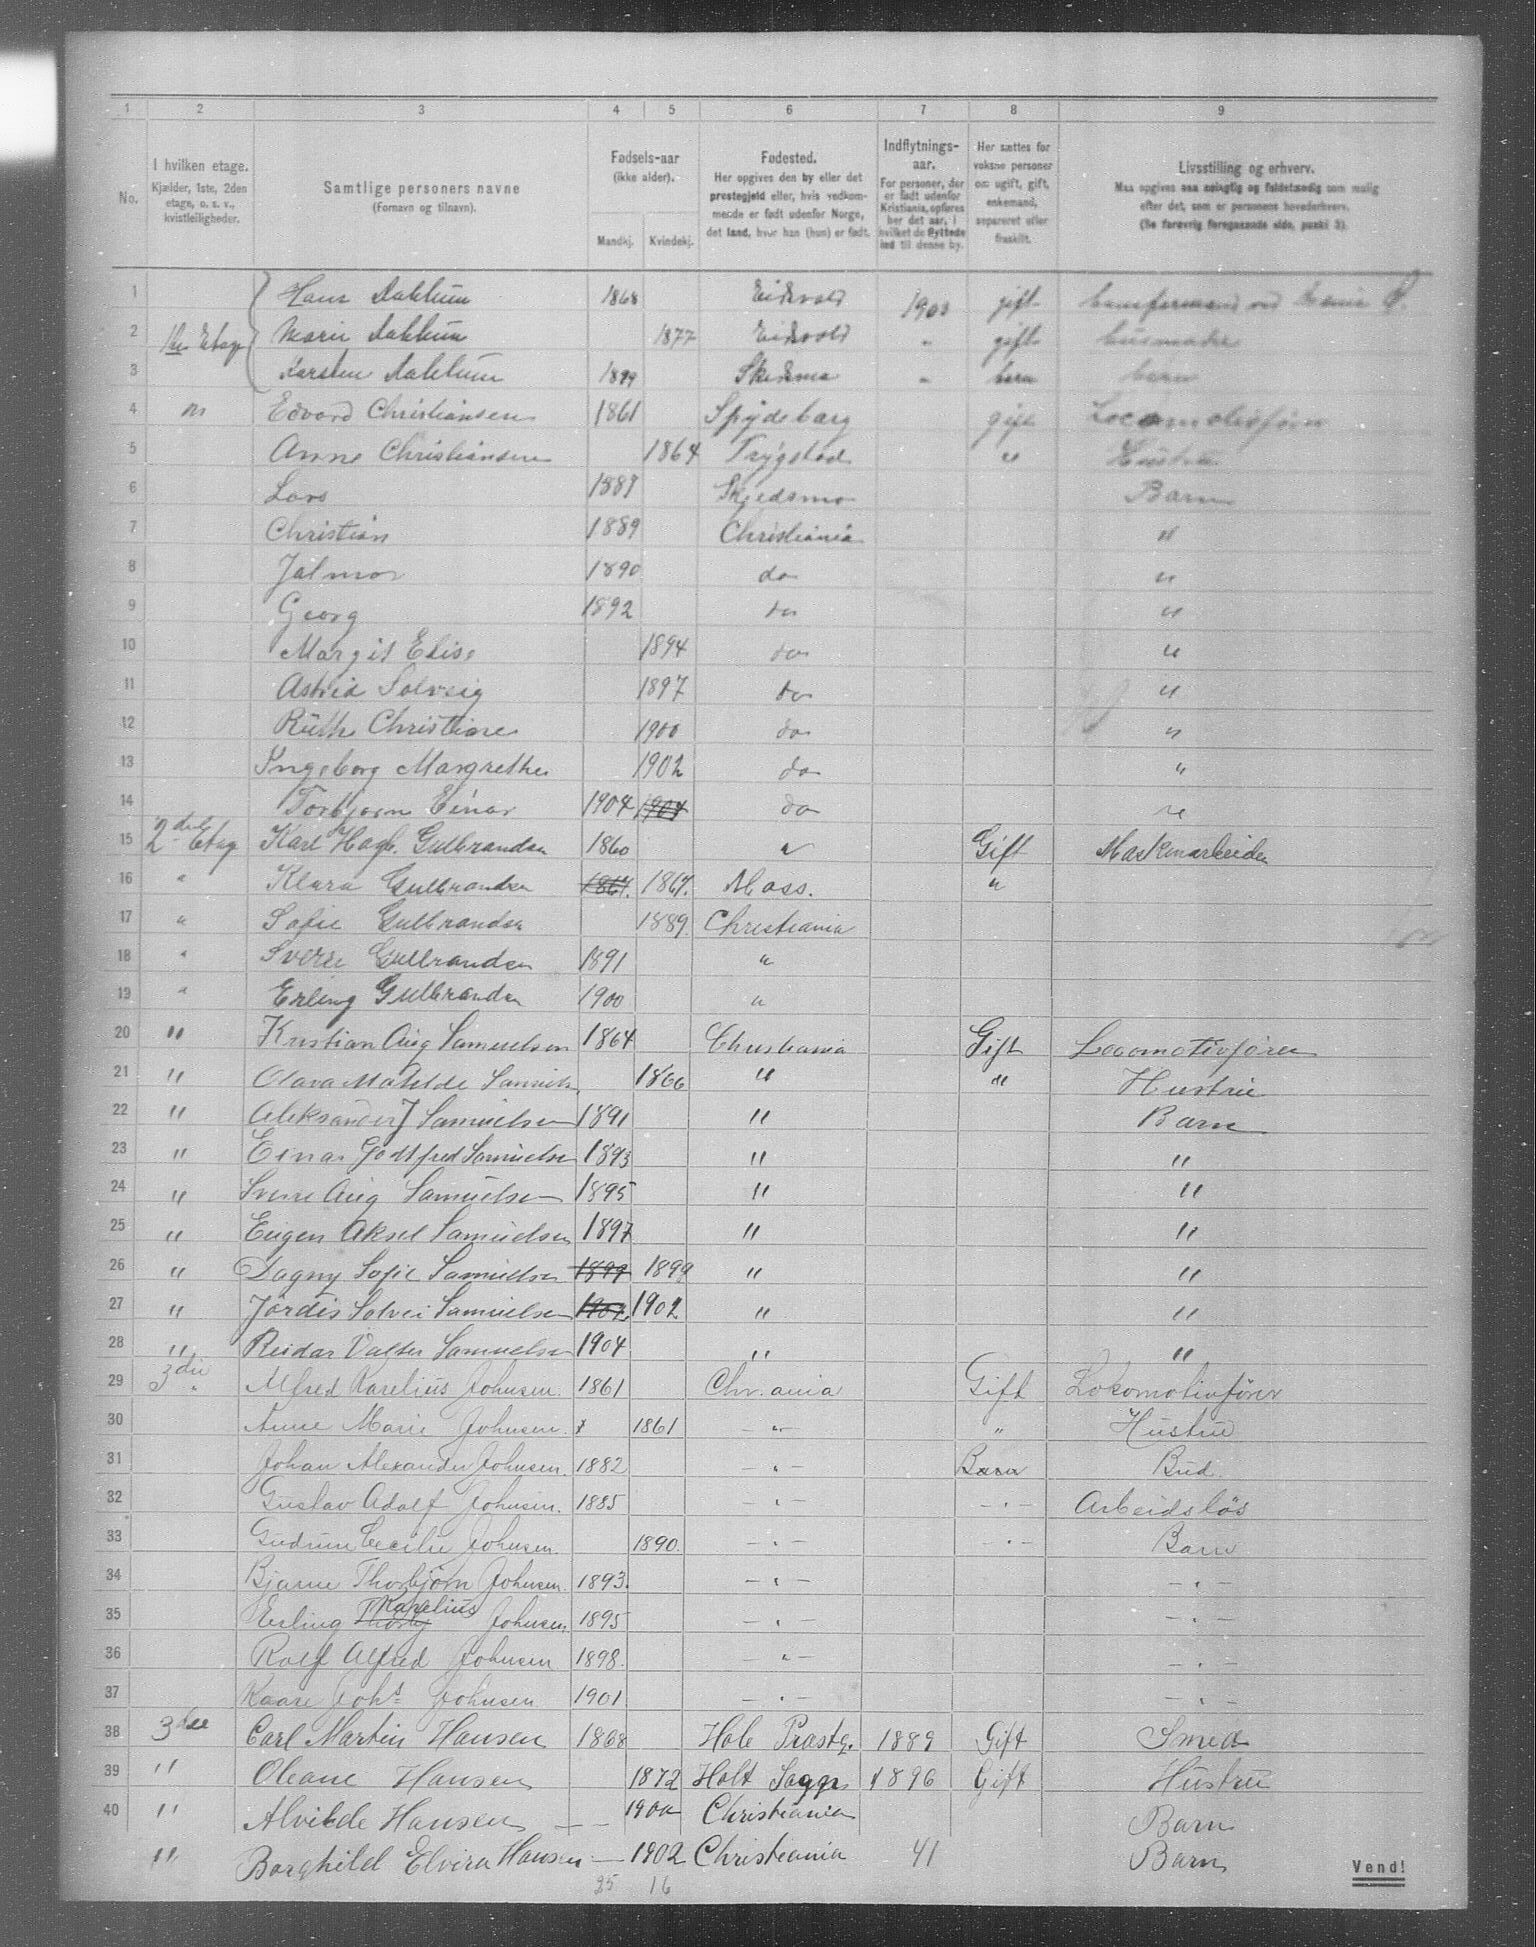 1 2 3 4 5 6 7 8 9
No.
I hvilken etage.
Kjælder, 1ste, 2den
etage, o. s. v.,
kvistleiligheder.
Samtlige personers navne
(Fornavn og tilnavn).
Fødsels-aar
(ikke alder).
Mandkj. Kvindekj.
Fødested.
Her opgives den by eller det
prestegjeld eller, hvis vedkom-
mende er født udenfor Norge,
det land, hvor han (hun) er født.
Indflytnings-
aar.
For personer, der
er født udenfor
Kristiania, opføres
her det aar, i
hvilket de flyttede
ind til denne by.
Her sættes for
voksne personer
om ugift, gift,
enkemand,
separeret eller
fraskilt.
Livsstilling og erhverv.
Maa opgives saa nøiagtig og fuldstændig som mulig
efter det, som er personens hovederhverv.
(Se forøvrig foregaaende side, punkt 3).
1 Hans Dahlum 1868 Eidsvold 1903 gift
2 1ste Etage Marie Dahlum 1877 Eidsvold " gift husmoder
3 Karsten Dahlum 1899 Skedsmo " barn barn
4 Edvard Christiansen 1861 Spydeberg gift Locomotivfører
5 Anne Christiansen 1864 Trygstad " Hustru
6 Lars 1887 Skjedsmo Barn
7 Christian 1889 Christiania "
8 Jalmar 1890 do "
9 Georg 1892 do "
10 Margit Elise 1894 do "
11 Astrid Solveig 1897 do "
12 Ruth Christiane 1900 do "
13 Ingeborg Margrethe 1902 do "
14 Torbjørn Einar 1904 1904 do "
15 2den Etag Karl Hagb. Gulbrandsen 1860 " Gift Maskinarbeider
16 " Klara Gulbrandsen 1867. 1867. Moss. "
17 " Sofie Gulbrandsen 1889. Christiania
18 " Sverre Gulbrandsen 1891 "
19 " Erling Gulbrandsen 1900 "
20 " Kristian Aug Samuelsen 1864 Christiania Gift Locomotivfører
21 " Olava Matilde Samuels. 1866 " " Hustru
22 " Aleksander J Samuelsen 1891 " Barn
23 " Einar Godtfred Samuelsen 1893 " "
24 " Sverre Aug Samuelsen 1895 " "
25 " Eugen Aksel Samuelsen 1897 " "
26 " Dagny Sofie Samuelsen 1899 1899 " "
27 " Jordis Solvei Samuelsen 1902 1902 " "
28 " Reidar Valter Samuelsen 1904 " "
29 3die " Alfred Karelius Johnsen. 1861 Chr.ania Gift Lokomotivfører
30 Anne Marie Johnsen. 1861 -"- " Hustru
31 Johan Alexander Johnsen. 1882 -"- Barn Bud.
32 Gustav Adolf Johnsen. 1885 -"- -"- Arbeidsløs
33 Gudrun Cecilie Johnsen. 1890. -"- -"- Barn
34 Bjarne Thorbjørn Johnsen. 1893. -"- -"-
Karelius
35 Erling Thorbj Johnsen. 1895 -"- -"-
36 Rolf Alfred Johnsen 1898. "- -"-
37 Kaare Johs Johnsen 1901 -"- -"-
38 3die Carl Martin Hansen 1868 Hole Præstg. 1889 Gift Smed
39 " Oleane Hansen 1872 Holt Sogn 1896 Gift Hustru
40 " Alvilde Hansen — — 1900 Christiania Barn
" Borghild Elvira Hansen — 1902 Christiania 41 Barn
25 16
Vend!